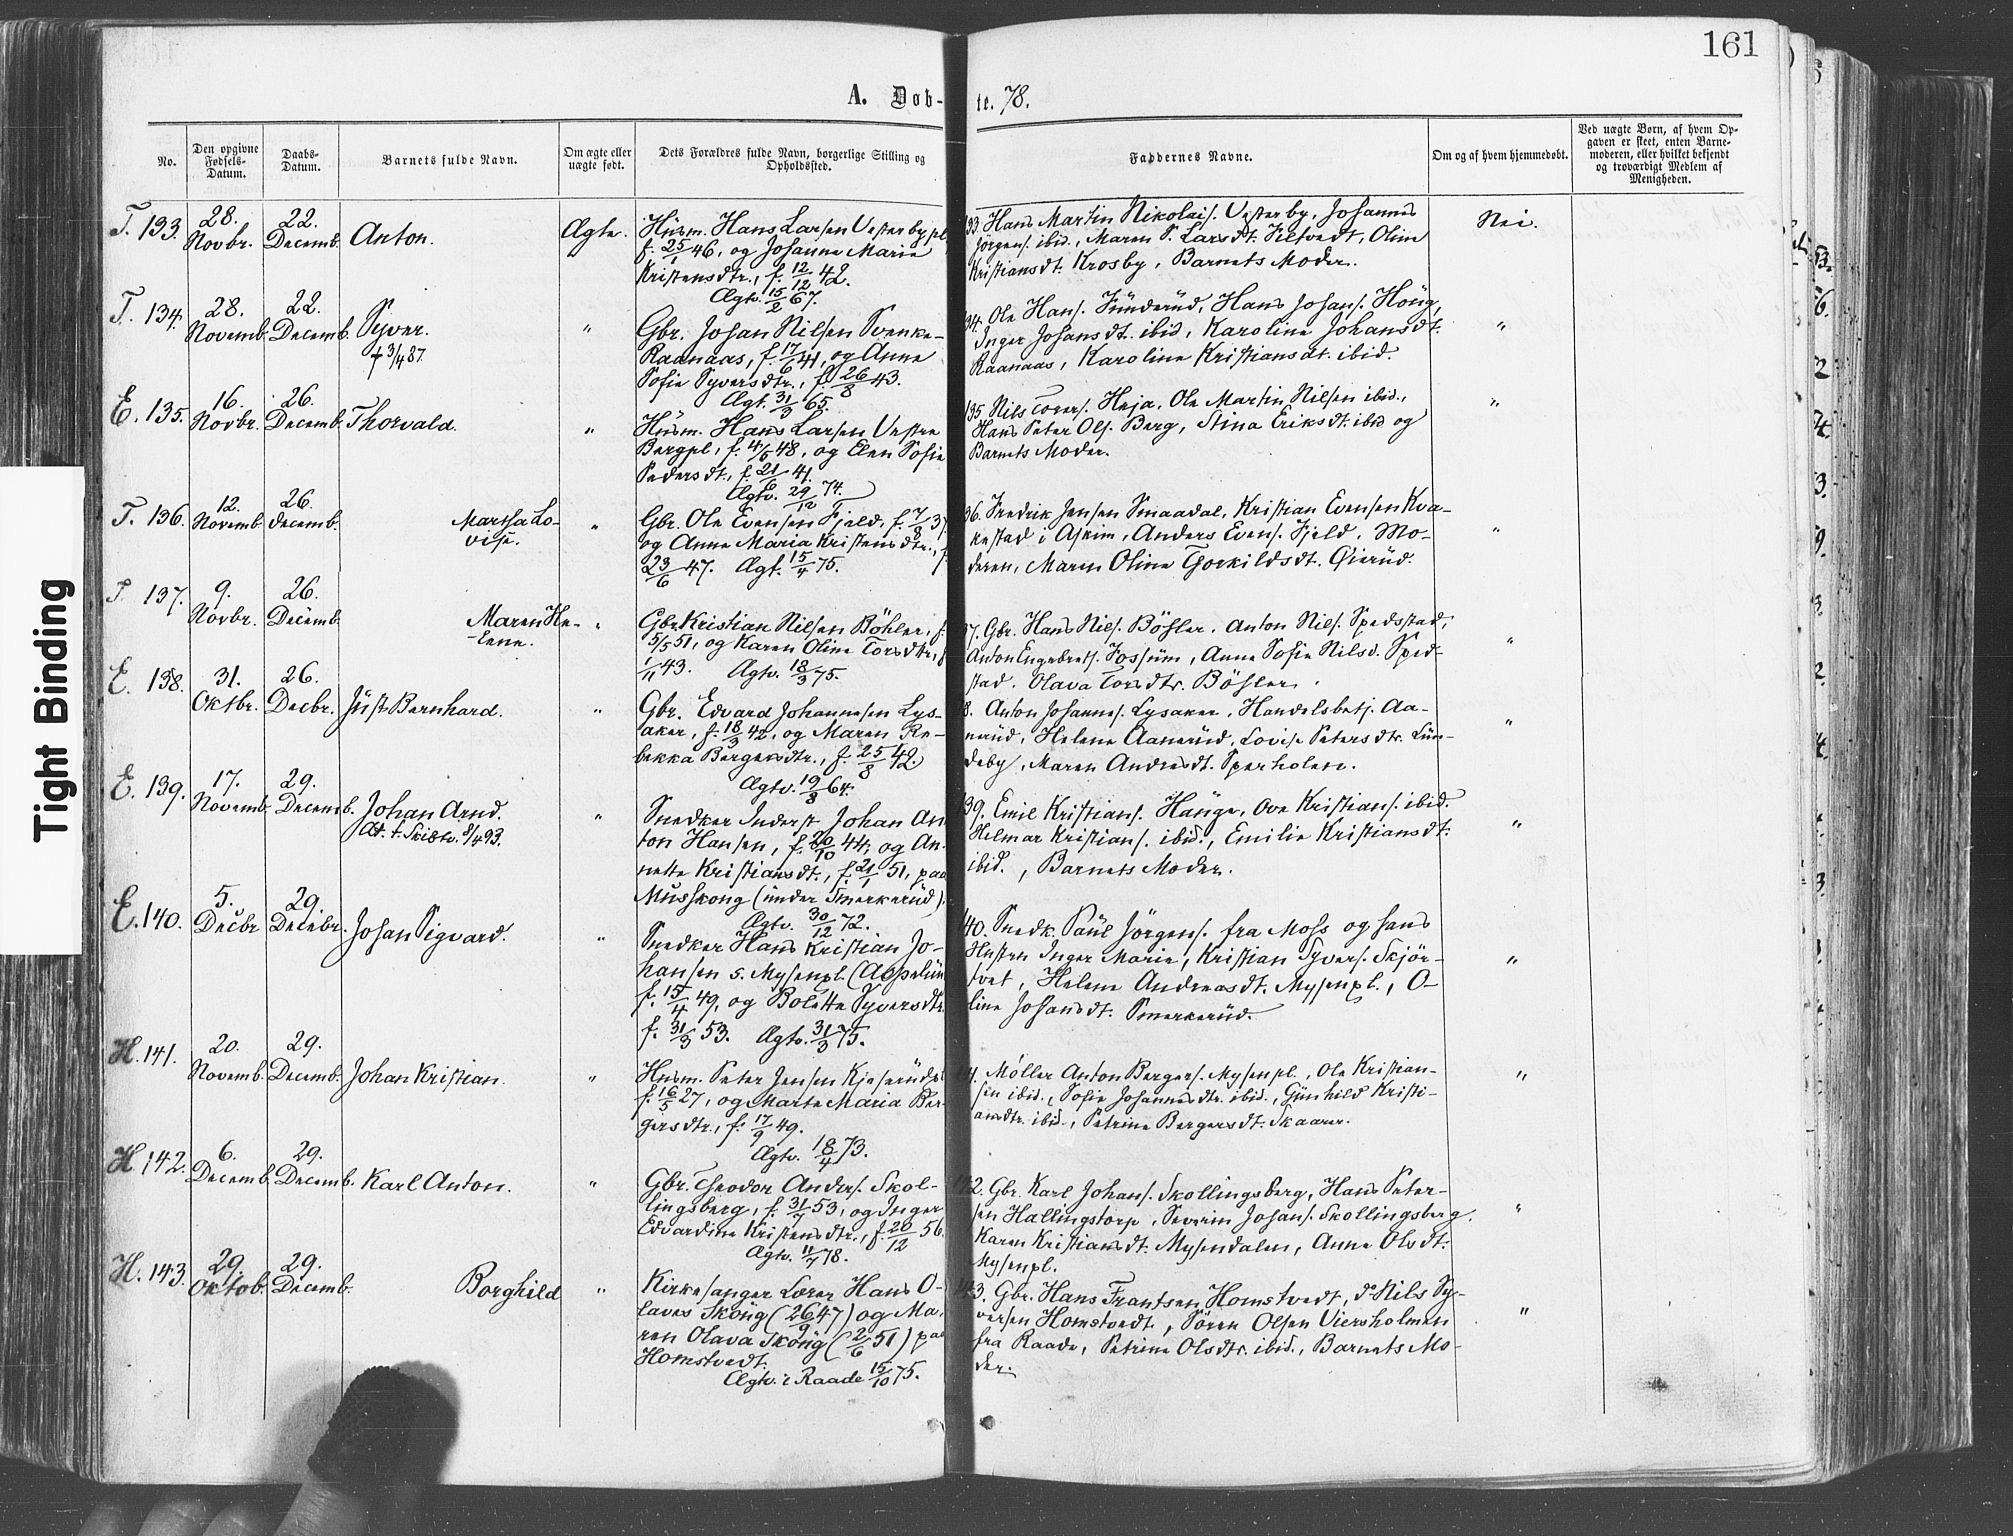 161
A. Døb-
te. 78.
No.
Den opgivne Fødsels-Datum.
Daabs-Datum.
Barnets fulde Navn.
Om ægte eller uægte født.
Dets Forældres fulde Navn, borgerlige Stilling og Opholdssted.
Faddernes Navne.
Om og af hvem hjemmedøbt.
Ved uægte Børn, af hvem Op-
gaven er skeet, enten Barne-
moderen, eller hvilket bekjendt
og troværdigt Medlem af
Menigheden.
T. 133. 28. Novbr. 22. Decemb. Anton. Ægte.
Husm. Hans Larsen Vesterbypl.
f. 25/1 46, og Johanne Marie
Kristensdtr., f. 12/12 42.
Ægtv. 15/2 67.
133. Hans Martin Nikolais. Vesterby, Johannes
Jørgens. ibid., Maren S. Larsdt. Filtvedt, Oline
Kristiansdt. Krosby, Barnets Moder.
Nei.
T. 134. 28. Novemb. 22. Decemb. Syver. "
† 3/4 87.
Gbr. Johan Nilsen Svenke-
Raanaas, f. 17/6 41, og Anne
Sofie Syversdtr., f. 26/8 43.
Ægt. 31/3 65.
34. Ole Hans. Funderud, Hans Johans. Houg,
Inger Johansdt. ibid, Karoline Johansdt.
Raanaas, Karoline Kristiansdt. ibid.
"
E. 135. 16. Novbr. 26. Decemb. Thorvald. "
Husm. Hans Larsen Vestre
Bergpl., f. 4/5 48, og Elen Sofie
Pedersdt., f. 21/6 41.
Ægtv. 29/12 74.
135. Nils Tovers. Heja, Ole Martin Nilsen ibid.,
Hans Peter Ols. Berg, Stina Eriksdt. ibid og
Barnets Moder.
"
T. 136. 12. Novemb. 26. Decemb. Martha Lo-
vise. "
Gbr. Ole Evensen Fjeld, f. 7/8 37,
og Anne Maria Kristensdtr., f.
23/6 47. Ægt. 15/4 75.
36. Fredrik Jensen Smaadal, Kristian Evensen Kva-
kestad i Askim, Anders Evens. Fjeld. Mo-
deren, Maren Oline Torkildsdt. Øierud.
"
T. 137. 9. Novbr. 26. Decemb. Maren He-
lene. "
Gbr Kristian Nilsen Böhler, f.
5/5 51, og Karen Oline Torsdtr., f
1/11 43. Ægtv. 18/3 75.
37. Gbr. Hans Nils. Böhler. Anton Nils. Spedsstad,
Anton Engebrets. Fossum, Anne Sofie Nilsd. Sped-
stad. Olava Torsdtr. Böhler.
"
E. 138. 31. Oktbr. 26. Decbr. Just Bernhard. "
Gbr. Edvard Johannesen Lys-
aker, f. 18/3 42, og Maren Re-
bekka Bergersdtr., f. 25/8 42.
Ægtv. 19/8 64.
8. Anton Johannes. Lysaker, Handelsbetj. Aa-
nerud, Helene Aanerud, Lovise Petersdtr. Lun-
deby, Maren Andresdt. Sperholen.
"
E. 139. 17. Novemb. 29. Decemb. Johan Arnd. "
Snedker Inderst Johan An-
ton Hansen, f. 20/10 44, og An-
nette Kristiansdt., f. 21/1 51, paa
Musskong (under Smerkerud).
Ægtv. 30/12 72.
139. Emil Kristians. Hauge, Ove Kristians. ibid.
Helmar Kristians. ibid., Emilie Kristiansdt.
ibid., Barnets Moder.
"
E. 140. 5. Decbr 29. Decebr. Johan Sigvard. "
Snedker Hans Kristian Jo-
hansen s. Mysenpl.
f. 15/4 49, og Bolette Syversdtr.
f. 31/3 53. Ægtv. 31/3 75.
40. Snedk. Paul Jörgens. fra Moss og hans
Hustru Inger Marie, Kristian Syvers. Skjör-
tvet, Helene Andreasdt. Mysenpl., O-
line Johansdt. Smerkerud.
"
H. 141. 20. Novemb. 29. Decemb. Johan Kristian. "
Husm. Peter Jensen Kjeserudpl
f. 16/5 27, og Marte Maria Ber-
gersdtr., f. 17/9 49.
Ægtv. 18/4 73.
41. Møller Anton Bergers. Mysenpl., Ole Kristian-
sen ibid., Sofie Johannesdtr. ibid., Gunhild Kristi-
ansdtr. ibid., Petrine Bergersdt. Skaarer.
"
H. 142. 6. Decemb. 29. Decemb. Karl Anton. "
Gbr. Theodor Anders. Skol-
lingsberg, f. 31/7 53, og Inger
Edvardine Kristensdtr., f. 20/12 56.
Ægtv. 11/4 78.
142. Gbr. Karl Johans. Skollingsberg, Hans Peter-
sen Hallingstorp, Severin Johans. Skollingsberg.
Karen Kristiansdt. Mysendalen, Anne Olsdt.
Mysenpl.
"
H. 143. 29. Oktob. 29. Decemb. Borghild "
Kirkesanger Lærer Hans O-
laves Skoug (26/9 47) og Ma-
ren Olava Skoug (2/6 51) paa
Homstvedt.
Ægtv. i Raade 15/10 75.
143. Gbr. Hans Frantsen Homstvedt, do Nils Sy-
versen Homstvedt, Sören Olsen Viersholmen
fra Raade, Petrine Olsdtr. ibid., Barnets Mo-
der.
"
Tight Binding